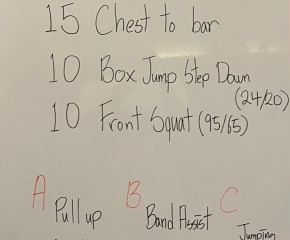 15 Chest to bar
10 Box Jump Step Down
(24/20)
10 Front Squat (95/65)
A Pull up B Band Assist C Jumping